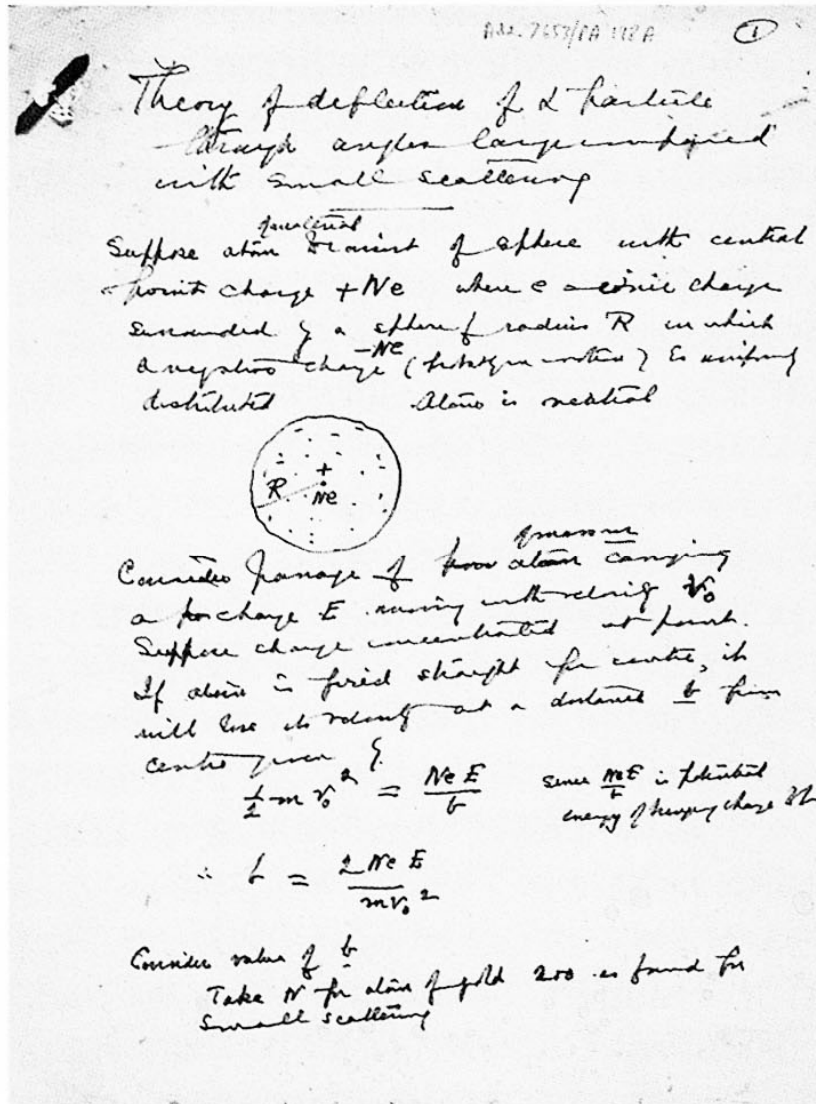 Add. 7653/PA 198 A
1
Theory of deflection of α particle
through angles large compared
with small scattering
material
Suppose atom consist of sphere with central
point charge +Ne where e = ionic charge
surrounded by a sphere of radius R in which
a negative charge -Ne is uniformly
distributed Atom is neutral
+
R Ne
Consider passage of atom carrying
a pos charge E moving with velocity v₀
Suppose charge concentrated at point.
If atom is fired straight for centre, it
will lose its velocity at a distance b from
centre given by
½ m v₀² = NeE/b since NeE/b is potential
energy of bringing charge
∴ b = 2NeE/mv₀²
Consider value of b
Take N for atom of gold 200 as found for
small scattering